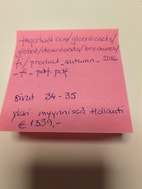 fagerhult.com/globalassets/
global/downloads/brochures/
f/product_autumn_2016
-f-pdf.pdf
sivut 34-35
yksi myynnissä
€ 1339,-